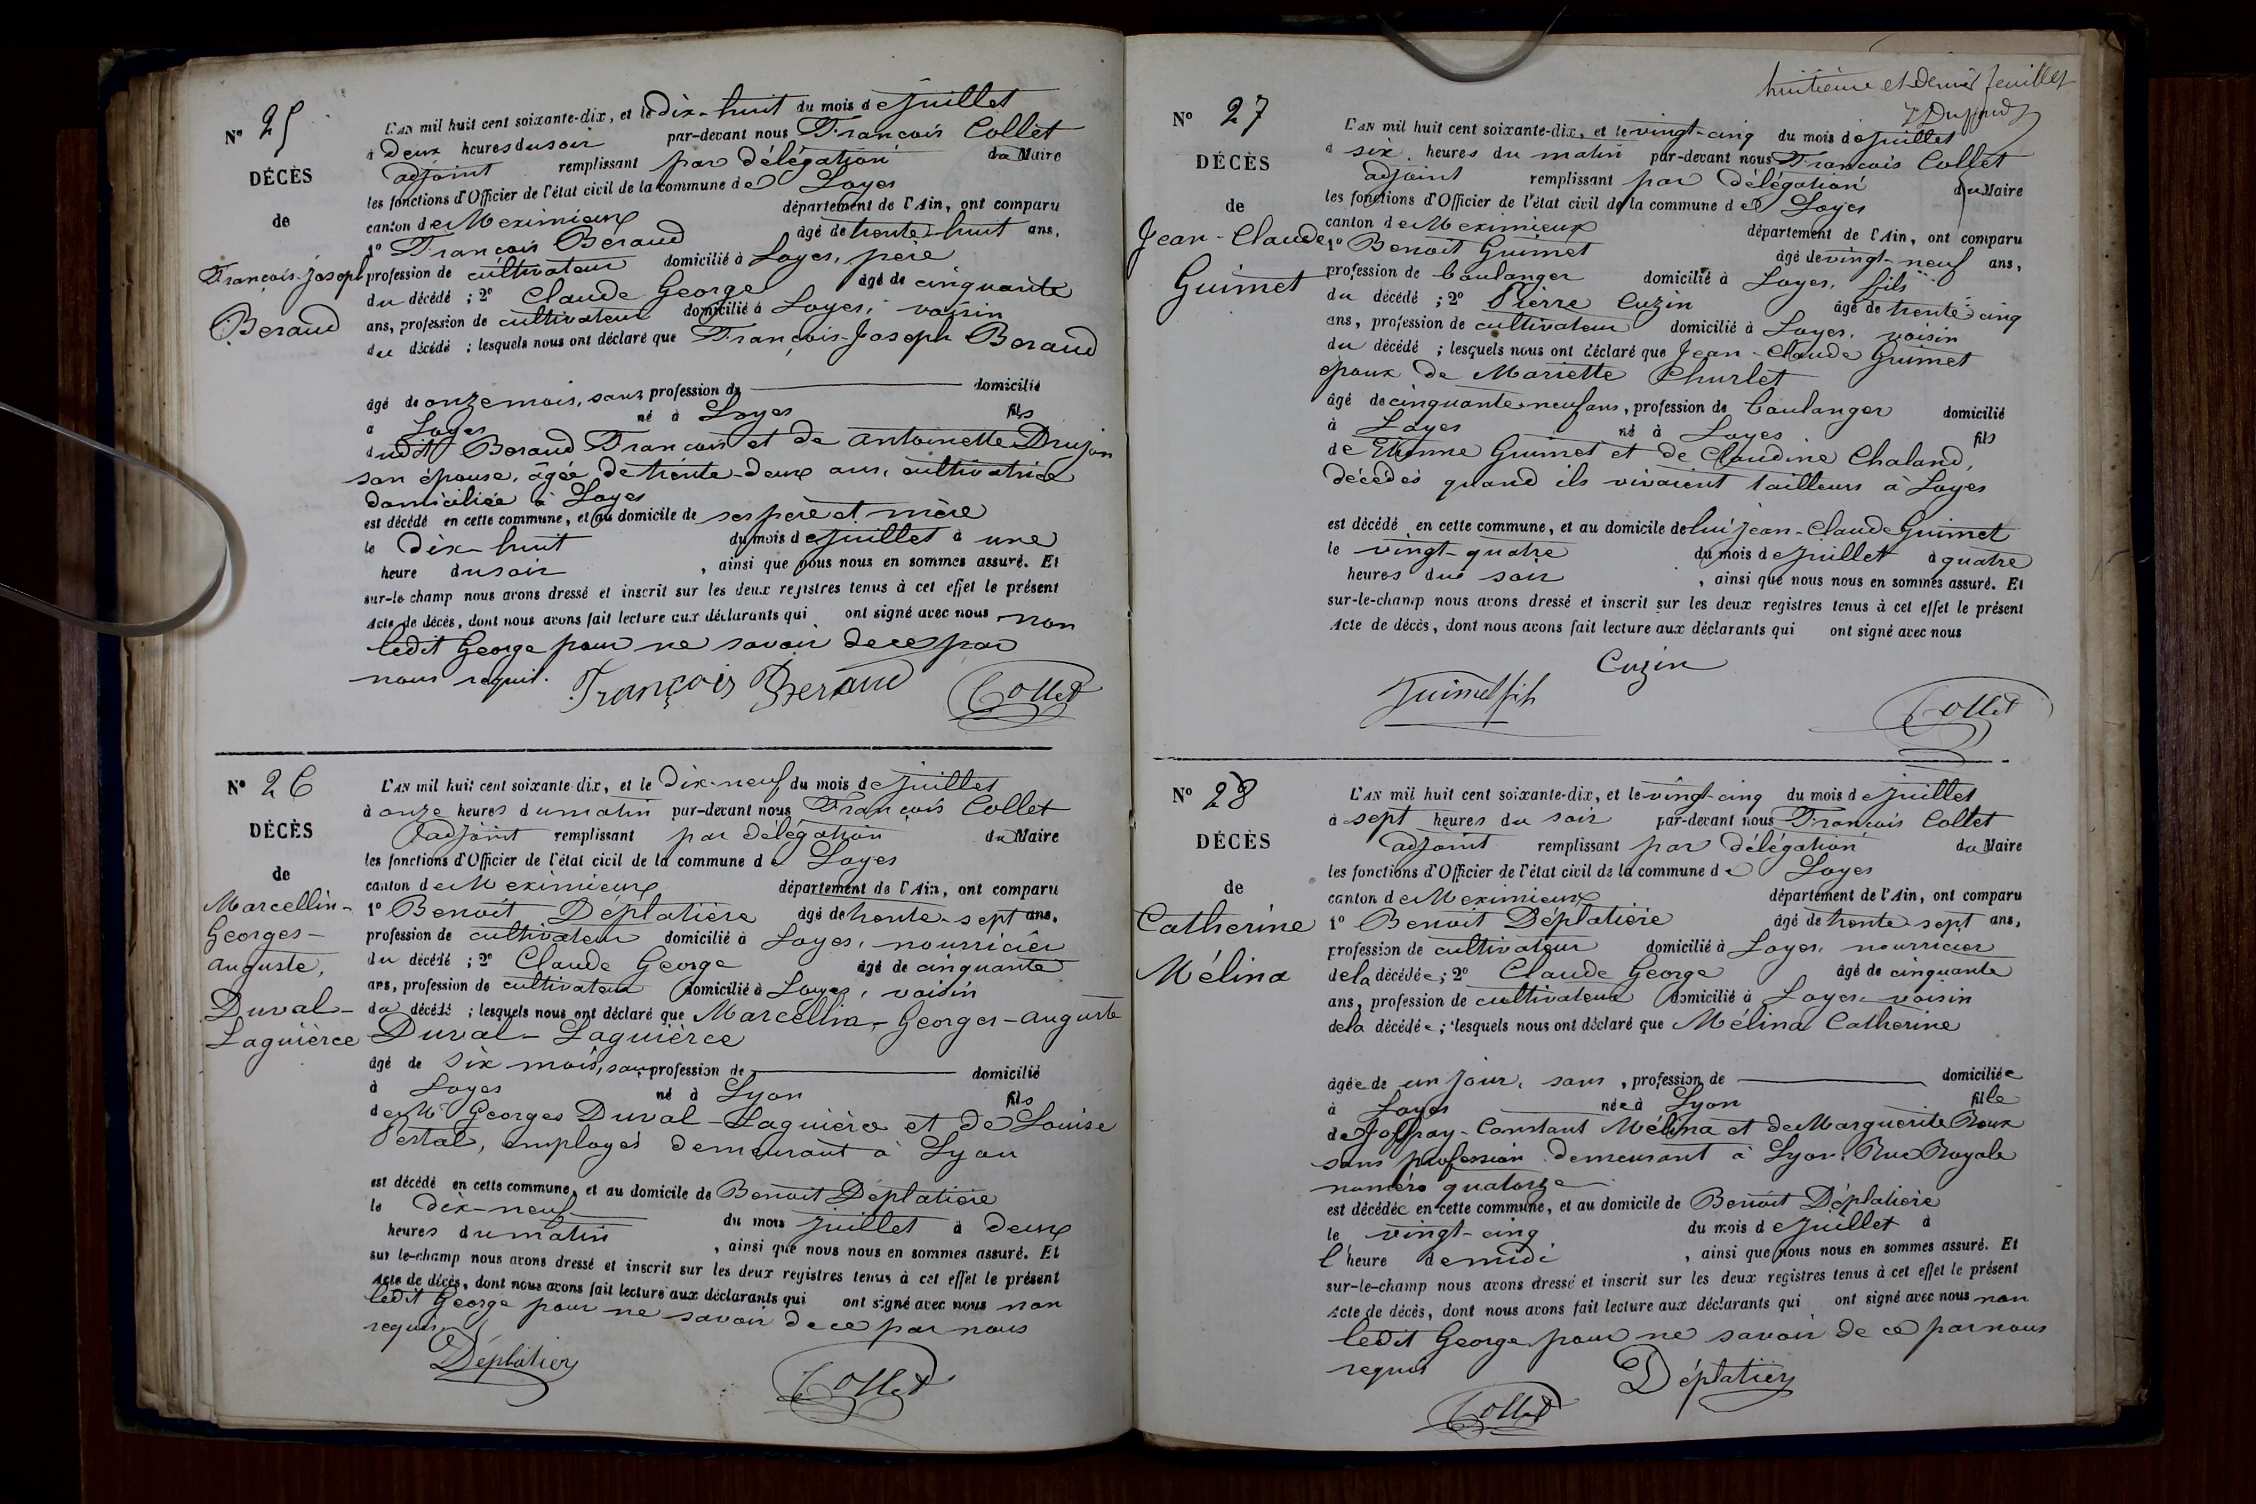 N° 25
DÉCÈS
de
François-Joseph
Beraud
L'AN mil huit cent soixante-dix, et le dix-huit du mois de juillet
à deux heures du soir par-devant nous François Collet
adjoint remplissant par délégation du Maire
les fonctions d'Officier de l'état civil de la commune de Loyes
canton de Meximieux département de l'Ain, ont comparu
1° François Béraud âgé de trente-huit ans,
profession de cultivateur domicilié à Loyes, père
du décédé ; 2° Claude George âgé de cinquante
ans, profession de cultivateur domicilié à Loyes, voisin
du décédé ; lesquels nous ont déclaré que François-Joseph Beraud
âgé de onze mois, sans profession de domicilié
à Loyes né à Loyes fils
dudit Beraud François et de Antoinette Drujon
son épouse, âgée de trente-deux ans, cultivatrice
domiciliée à Loyes
est décédé en cette commune, et au domicile de ses père et mère
le dix-huit du mois de juillet à une
heure du soir , ainsi que nous nous en sommes assuré. Et
sur-le champ nous avons dressé et inscrit sur les deux registres tenus à cet effet le présent
Acte de décès, dont nous avons fait lecture aux déclarants qui ont signé avec nous non
ledit George pour ne savoir de ce par
nous requis.
François Beraud Collet
N° 26
DÉCÈS
de
Marcellin-
Georges-
Auguste,
Duval-
Laguièrce
L'AN mil huit cent soixante dix, et le dix-neuf du mois de juillet
à onze heures du matin par-devant nous François Collet
adjoint remplissant par délégation du Maire
les fonctions d'Officier de l'état civil de la commune de Loyes
canton de Meximieux département de l'Ain, ont comparu
1° Benoit Déplatière âgé de trente-sept ans,
profession de cultivateur domicilié à Loyes, nourricier
du décédé ; 2° Claude George âgé de cinquante
ans, profession de cultivateur domicilié à Loyes, voisin
du décédé ; lesquels nous ont déclaré que Marcellin-Georges-Auguste
Duval-Laguièrce
âgé de six mois, sans profession de domicilié
à Loyes né à Lyon fils
de Mr Georges Duval-Laguièrce et de Louise
Pestal, employés demeurant à Lyon
est décédé en cette commune, et au domicile de Benoit Déplatière
le dix-neuf du mois juillet à deux
heures du matin , ainsi que nous nous en sommes assuré. Et
sur le-champ nous avons dressé et inscrit sur les deux registres tenus à cet effet le présent
Acte de décès, dont nous avons fait lecture aux déclarants qui ont signé avec nous non
ledit George pour ne savoir de ce par nous
requis.
Déplatier Collet
huitième et dernier feuillet
N° 27
DÉCÈS
de
Jean-Claude
Guimet
L'AN mil huit cent soixante-dix, et le vingt-cinq du mois de juillet
à six heures du matin par-devant nous François Collet
adjoint remplissant par délégation du Maire
les fonctions d'Officier de l'état civil de la commune de Loyes
canton de Meximieux département de l'Ain, ont comparu
1° Benoit Guimet âgé de vingt-neuf ans,
profession de boulanger domicilié à Loyes, fils
du décédé ; 2° Pierre Cuzin âgé de trente cinq
ans, profession de cultivateur domicilié à Loyes, voisin
du décédé ; lesquels nous ont déclaré que Jean-Claude Guimet
époux de Mariette Churlet
âgé de cinquante-neuf ans, profession de boulanger domicilié
à Loyes né à Loyes fils
de Etienne Guimet et de Claudine Chaland,
décédés quand ils vivaient tailleurs à Loyes
est décédé en cette commune, et au domicile de lui Jean-Claude Guimet
le vingt-quatre du mois de juillet à quatre
heures du soir , ainsi que nous nous en sommes assuré. Et
sur-le-champ nous avons dressé et inscrit sur les deux registres tenus à cet effet le présent
Acte de décès, dont nous avons fait lecture aux déclarants qui ont signé avec nous
Cuzin
Guimet fils Collet
N° 28
DÉCÈS
de
Catherine
Mélina
L'AN mil huit cent soixante-dix, et le vingt-cinq du mois de juillet
à sept heures du soir par-devant nous François Collet
adjoint remplissant par délégation du Maire
les fonctions d'Officier de l'état civil de la commune de Loyes
canton de Meximieux département de l'Ain, ont comparu
1° Benoit Déplatière âgé de trente sept ans,
profession de cultivateur domicilié à Loyes, nourricier
de la décédée ; 2° Claude George âgé de cinquante
ans, profession de cultivateur domicilié à Loyes, voisin
de la décédée ; lesquels nous ont déclaré que Mélina Catherine
âgée de un jour, sans , profession de domiciliée
à Loyes née à Lyon fille
de Joffray-Constant Mélina et de Marguerite Roux
sans profession demeurant à Lyon, Rue Royale
numéro quatorze
est décédée en cette commune, et au domicile de Benoit Déplatière
le vingt-cinq du mois de juillet à
l'heure de midi , ainsi que nous nous en sommes assuré. Et
sur-le-champ nous avons dressé et inscrit sur les deux registres tenus à cet effet le présent
Acte de décès, dont nous avons fait lecture aux déclarants qui ont signé avec nous non
ledit George pour ne savoir de ce par nous
requis Déplatier
Collet